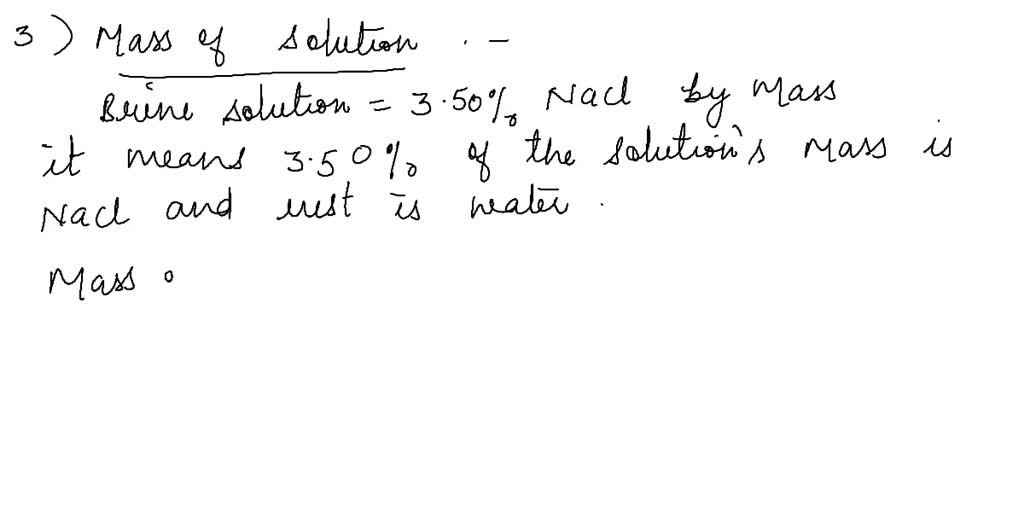 3) Mass of solution . –
Brine solution = 3.50% Nacl by Mass
it means 3.50% of the solution's Mass is
Nacl and rest is water .
Mass o